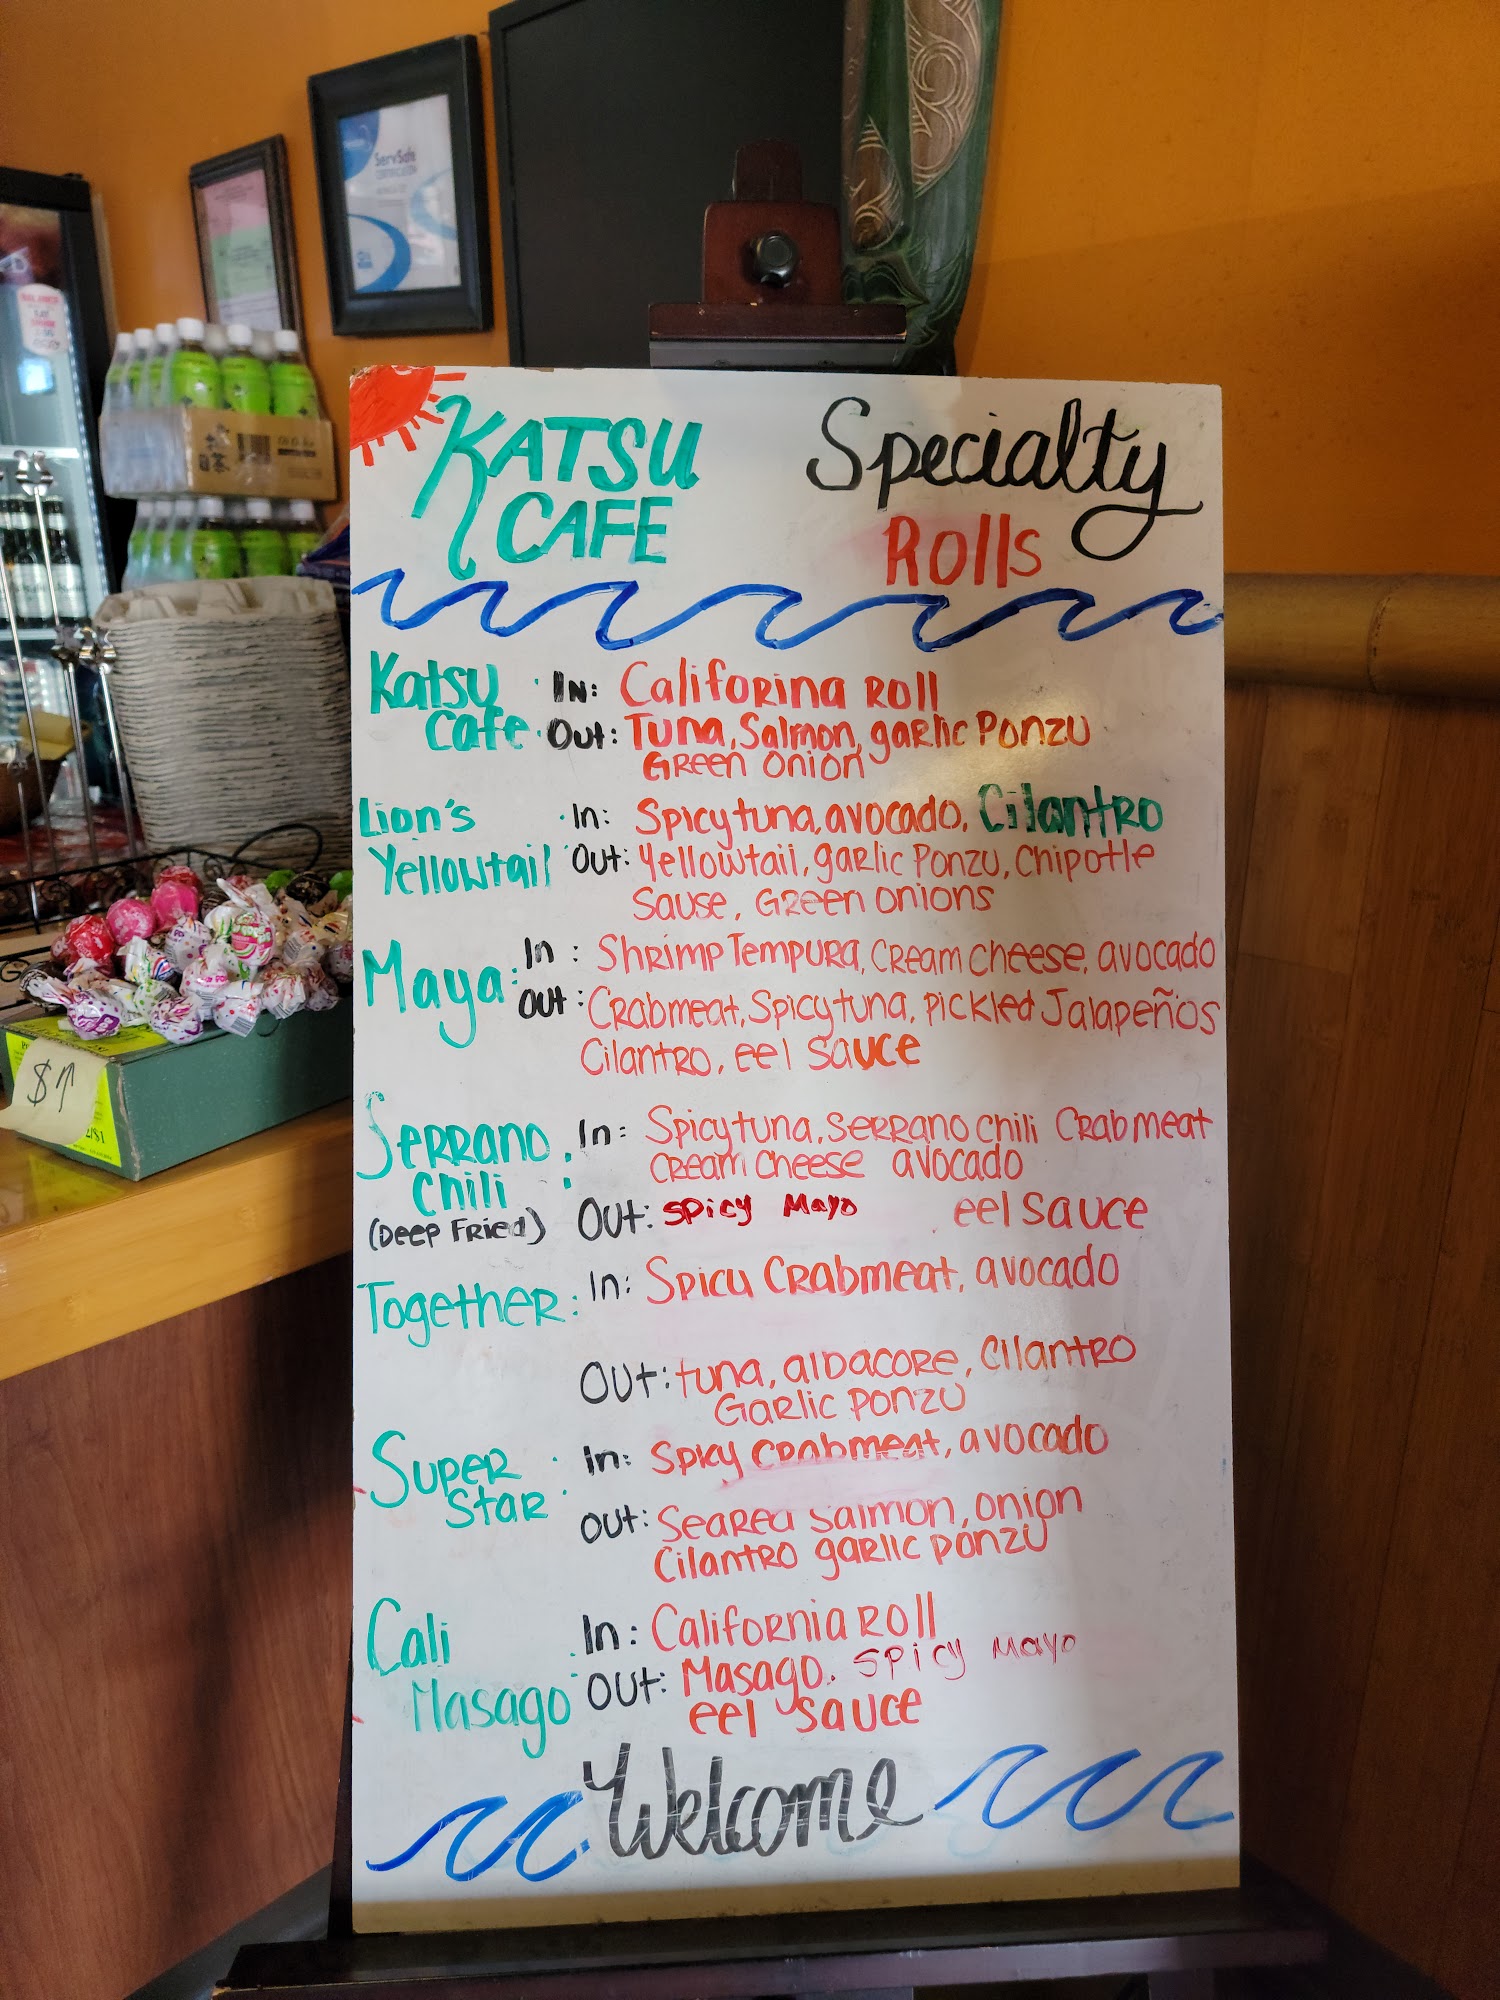 ServSafe
CERTIFICATION
KATSU
CAFE
Specialty
Rolls
Katsu
Cafe
IN: Califorina Roll
Out: Tuna, Salmon, garlic Ponzu
Green onion
Lion's
Yellowtail
In: Spicy tuna, avocado, Cilantro
Out: Yellowtail, garlic Ponzu, Chipotle
Sause, Green onions
Maya:
In: Shrimp Tempura, Cream cheese, avocado
Out: Crabmeat, Spicy tuna, pickled Jalapeños
Cilantro, eel sauce
Serrano
Chili
(Deep Fried)
In: Spicy tuna, Serrano chili Crabmeat
Cream cheese avocado
Out: Spicy Mayo eel sauce
Together:
In: Spicy Crabmeat, avocado
Out: tuna, albacore, Cilantro
Garlic ponzu
Super
Star
In: Spicy crabmeat, avocado
Out: Seared Salmon, onion
Cilantro garlic ponzu
Cali
Masago
In: California Roll
Out: Masago, Spicy Mayo
eel sauce
Welcome
2/$1